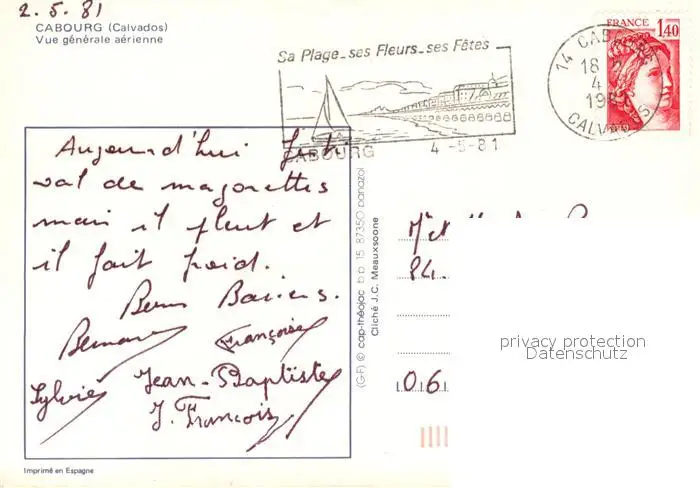 2.5.81
CABOURG (Calvados)
Vue générale aérienne
Sa Plage_ses Fleurs_ses Fêtes
CABOURG
4-5-81
14 CAB
18
4
19
CALVADOS
FRANCE
1,40
Aujourd'hui festi
val de majorettes
mais il pleut et
il fait froid.
Bons Baisers.
Bernard Françoise
Sylvie Jean-Baptiste
J. François
(G-F) © cap-théojac b.p. 15 87350 panazol
Cliché J.C. Meauxsoone
84.
06
privacy protection
Datenschutz
Imprimé en Espagne